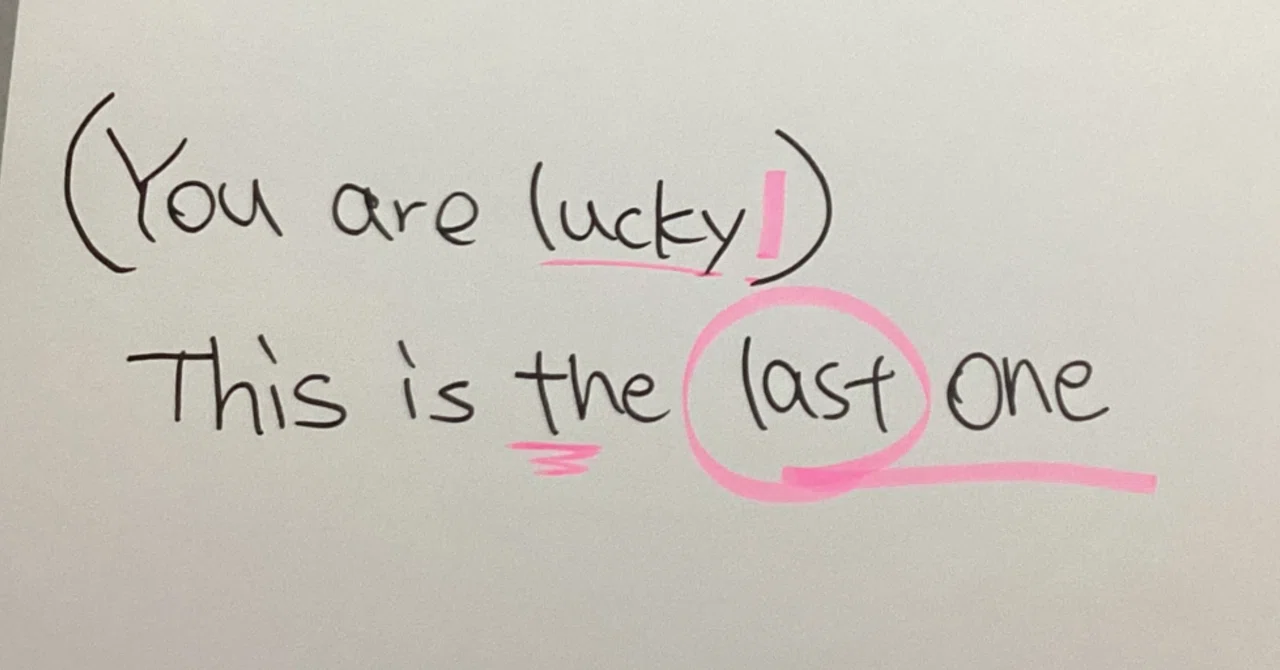 (You are lucky!)
This is the last one